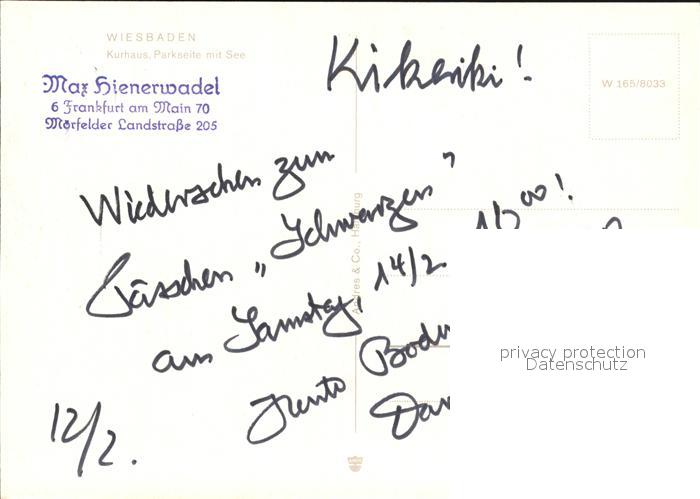 WIESBADEN
Kurhaus, Parkseite mit See
Max Hienerwadel
6 Frankfurt am Main 70
Mörfelder Landstraße 205
Kikeriki!
W 165/8033
Wiedersehen zum
Tässchen „Schwarzen"
am Samstag, 14/2
00!
12/2.
privacy protection
Datenschutz